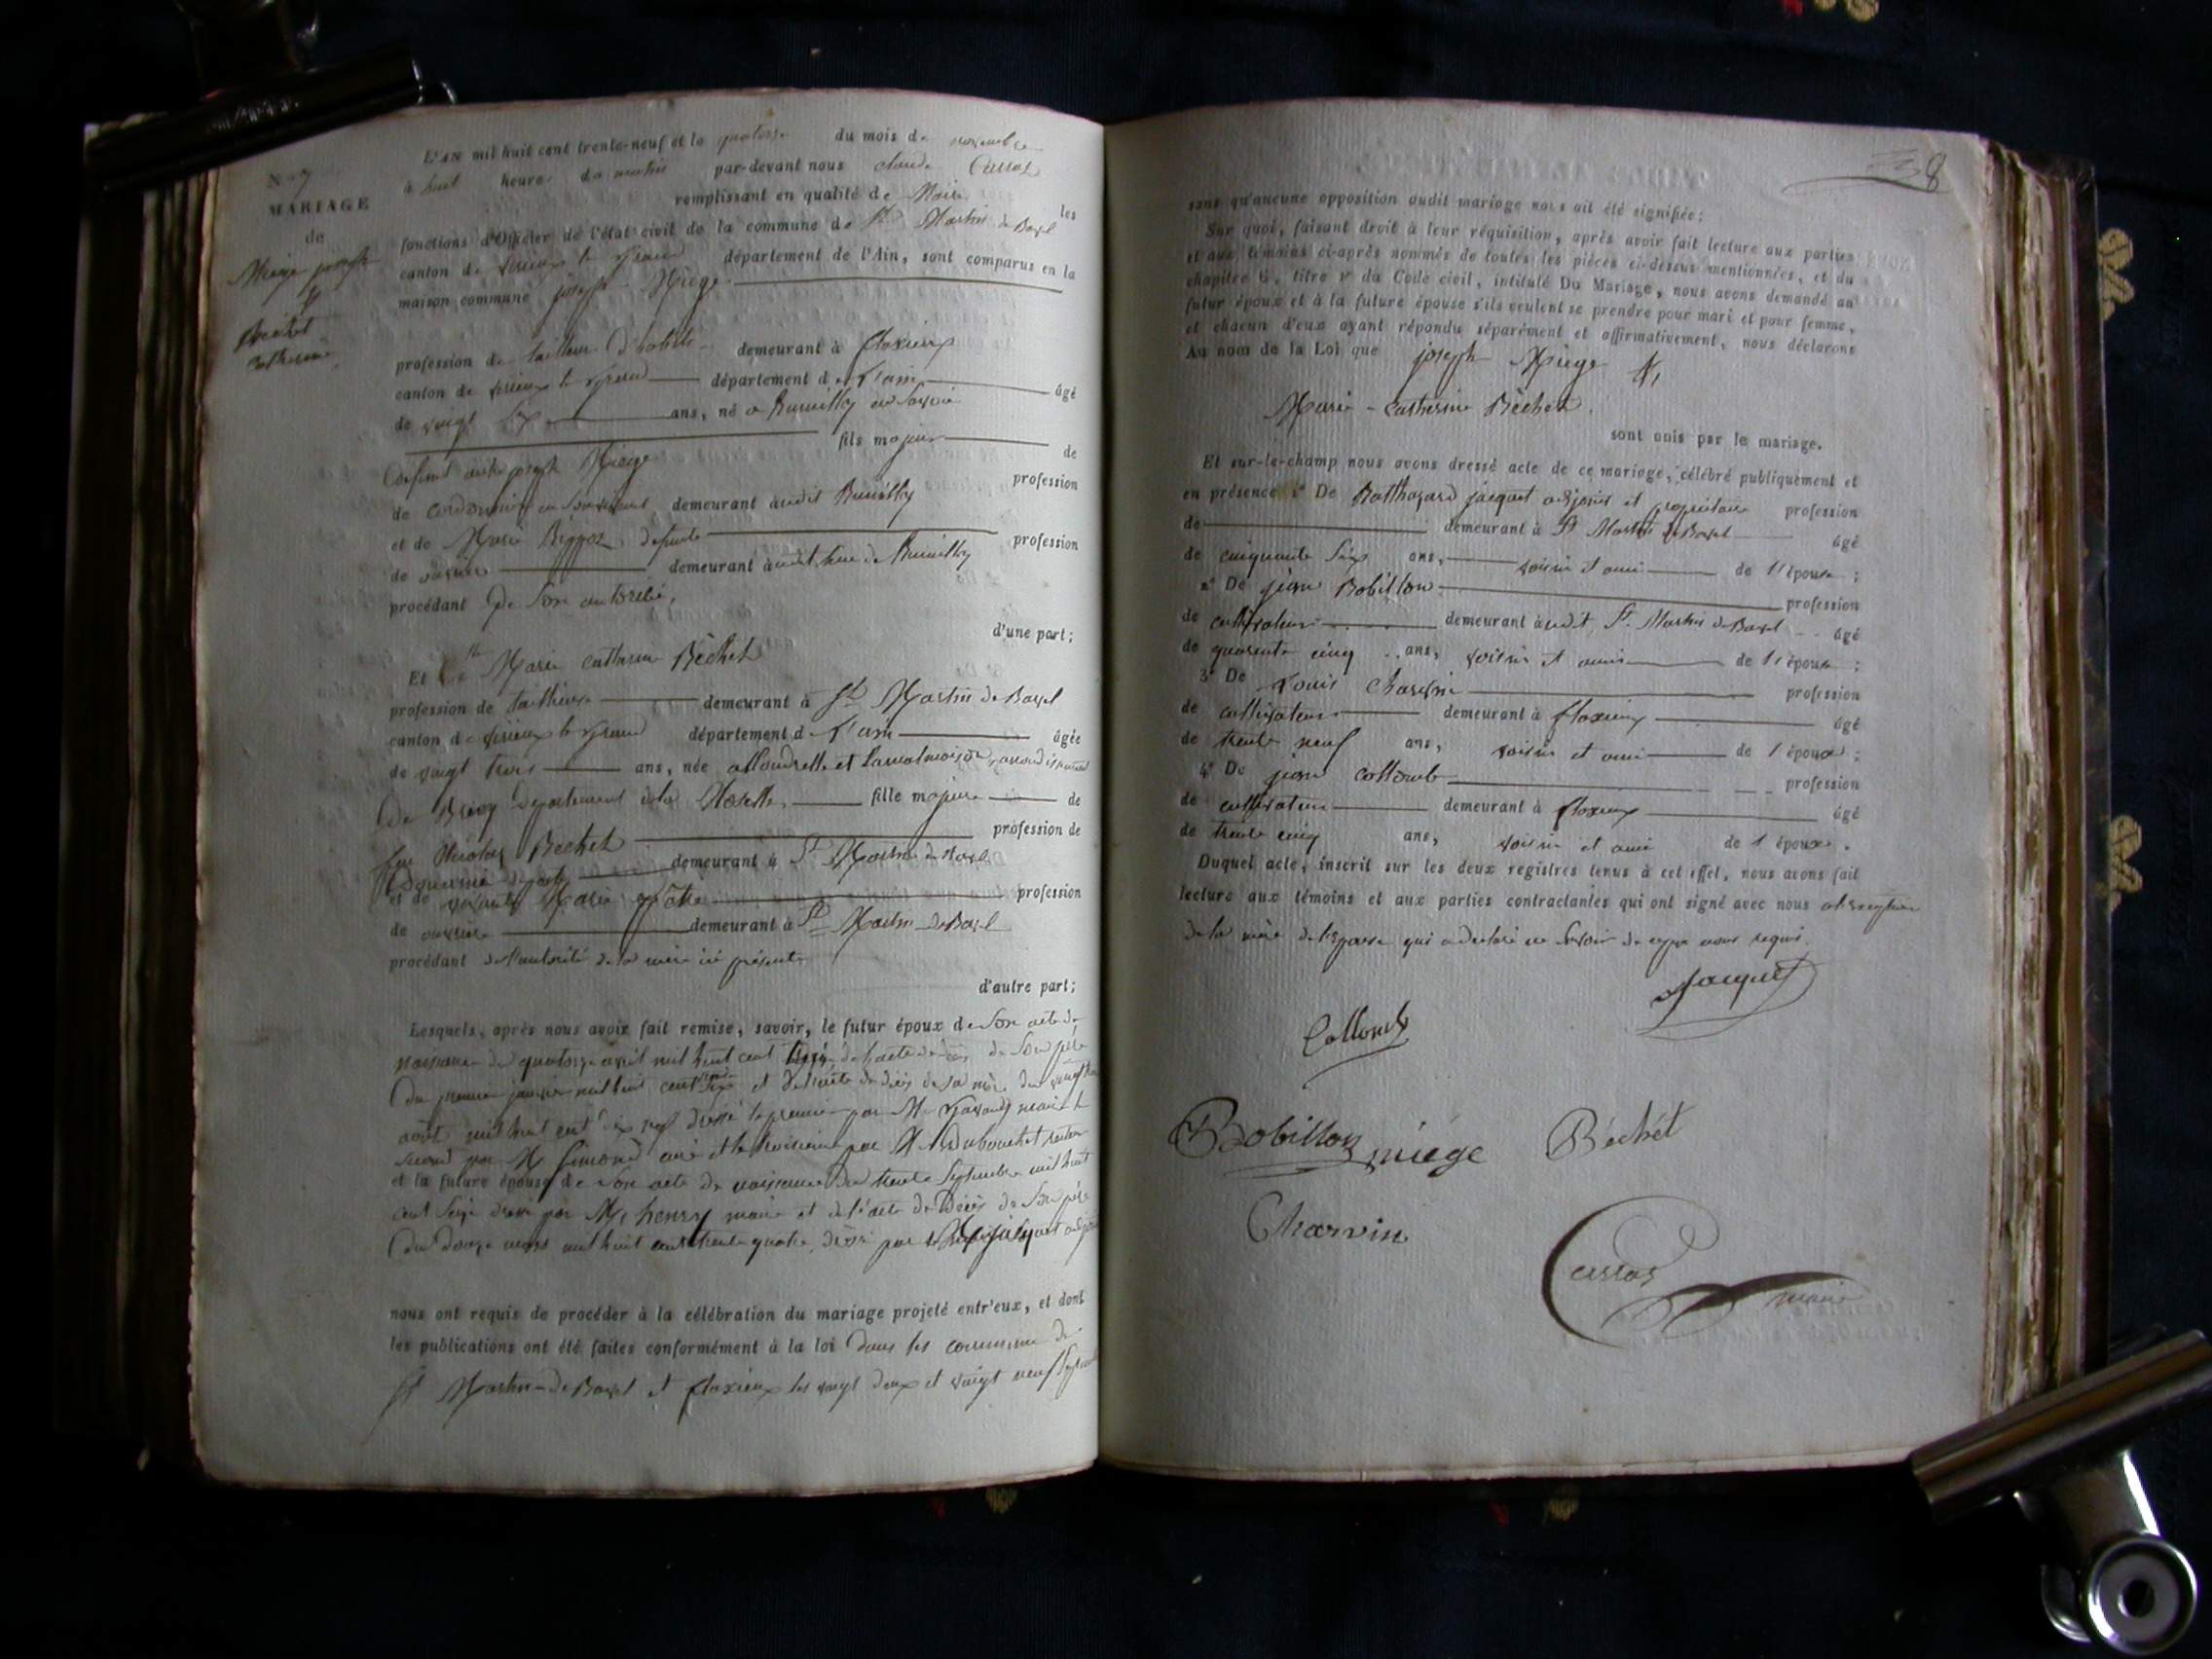 N° 7
MARIAGE
de
Miège joseph
&
Béchet
Catherine
L'AN mil huit cent trente-neuf et le quatorze du mois de novembre
à huit heures du matin par-devant nous claude Cassas
remplissant en qualité de Maire les
fonctions d'Officier de l'état civil de la commune de St Martin de Bavel
canton de virieux le grand département de l'Ain, sont comparus en la
maison commune joseph Miège
profession de tailleur d'habits demeurant à flaxieux
canton de virieux le grand département de l'ain âgé
de vingt six ans, né à Rumilly en Savoie
fils majeur de
défunt joseph Miège profession
de cordonnier demeurant audit Rumilly
et de Marie défunte profession
de demeurant audit lieu de Rumilly
procédant de son autorité,
d'une part;
Et Marie catherine Béchet
profession de demeurant à St Martin de Bavel
canton de virieux le grand département de l'ain âgée
de vingt trois ans, née allondrelle et Lamalmaison arrondissement
de Briey département de la Moselle fille majeure de
feu Nicolas Bechet profession de
demeurant à St Martin de Bavel
et de vivante Marie profession
de demeurant à St Martin de Bavel
procédant de l'autorité de sa mère ici présente
d'autre part;
Lesquels, après nous avoir fait remise, savoir, le futur époux de son acte de
naissance du quatorze avril mil huit cent treize de l'acte de décès de son père
du premier janvier mil huit cent et de l'acte de décès de sa mère du vingt
août mil huit cent dix neuf dressé le premier par M. maire le
second par M Simond curé et le troisième par M. Dubouchet
et la future épouse de son acte de naissance du trente Septembre mil huit
cent seize dressé par M. henry maire et de l'acte de décès de son père
du douze mars mil huit cent trente quatre, dressé par jacquet adjoint
nous ont requis de procéder à la célébration du mariage projeté entr'eux, et dont
les publications ont été faites conformément à la loi dans les commune de
St Martin de Bavel et flaxieux les vingt deux et vingt neuf Septembre
38
sans qu'aucune opposition audit mariage nous ait été signifiée;
Sur quoi, faisant droit à leur réquisition, après avoir fait lecture aux parties
et aux témoins ci-après nommés de toutes les pièces ci-dessus mentionnées, et du
chapitre 6, titre v du Code civil, intitulé Du Mariage, nous avons demandé au
futur époux et à la future épouse s'ils veulent se prendre pour mari et pour femme,
et chacun d'eux ayant répondu séparément et affirmativement, nous déclarons
Au nom de la Loi que joseph Miège &
Marie-catherine Béchet
sont unis par le mariage.
Et sur-le-champ nous avons dressé acte de ce mariage, célébré publiquement et
en présence 1° De Balthazard jacquet adjoint et propriétaire profession
de demeurant à St Martin de Bavel âgé
de cinquante six ans, voisin et ami de l'épouse;
2° De jean Bobillon profession
de cultivateur demeurant audit St. Martin de Bavel âgé
de quarante cinq ans, voisin et ami de l'épouse;
3° De Louis Charvin profession
de cultivateur demeurant à flaxieux âgé
de trente neuf ans, voisin et ami de l'époux;
4° De jean Collomb profession
de cultivateur demeurant à flaxieux âgé
de trente cinq ans, voisin et ami de l'époux.
Duquel acte, inscrit sur les deux registres tenus à cet effet, nous avons fait
lecture aux témoins et aux parties contractantes qui ont signé avec nous à l'exception
de la mère de l'epouse qui a déclaré ne savoir de ce par nous requis.
Jacquet
Collomb
Bobillon miége Béchét
Charvin
Cassas maire